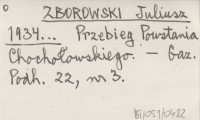 ZBOROWSKI Juliusz
1934... Przebieg Powstania
Chochołowskiego. — Gaz.
Podh. 22, nr 3.